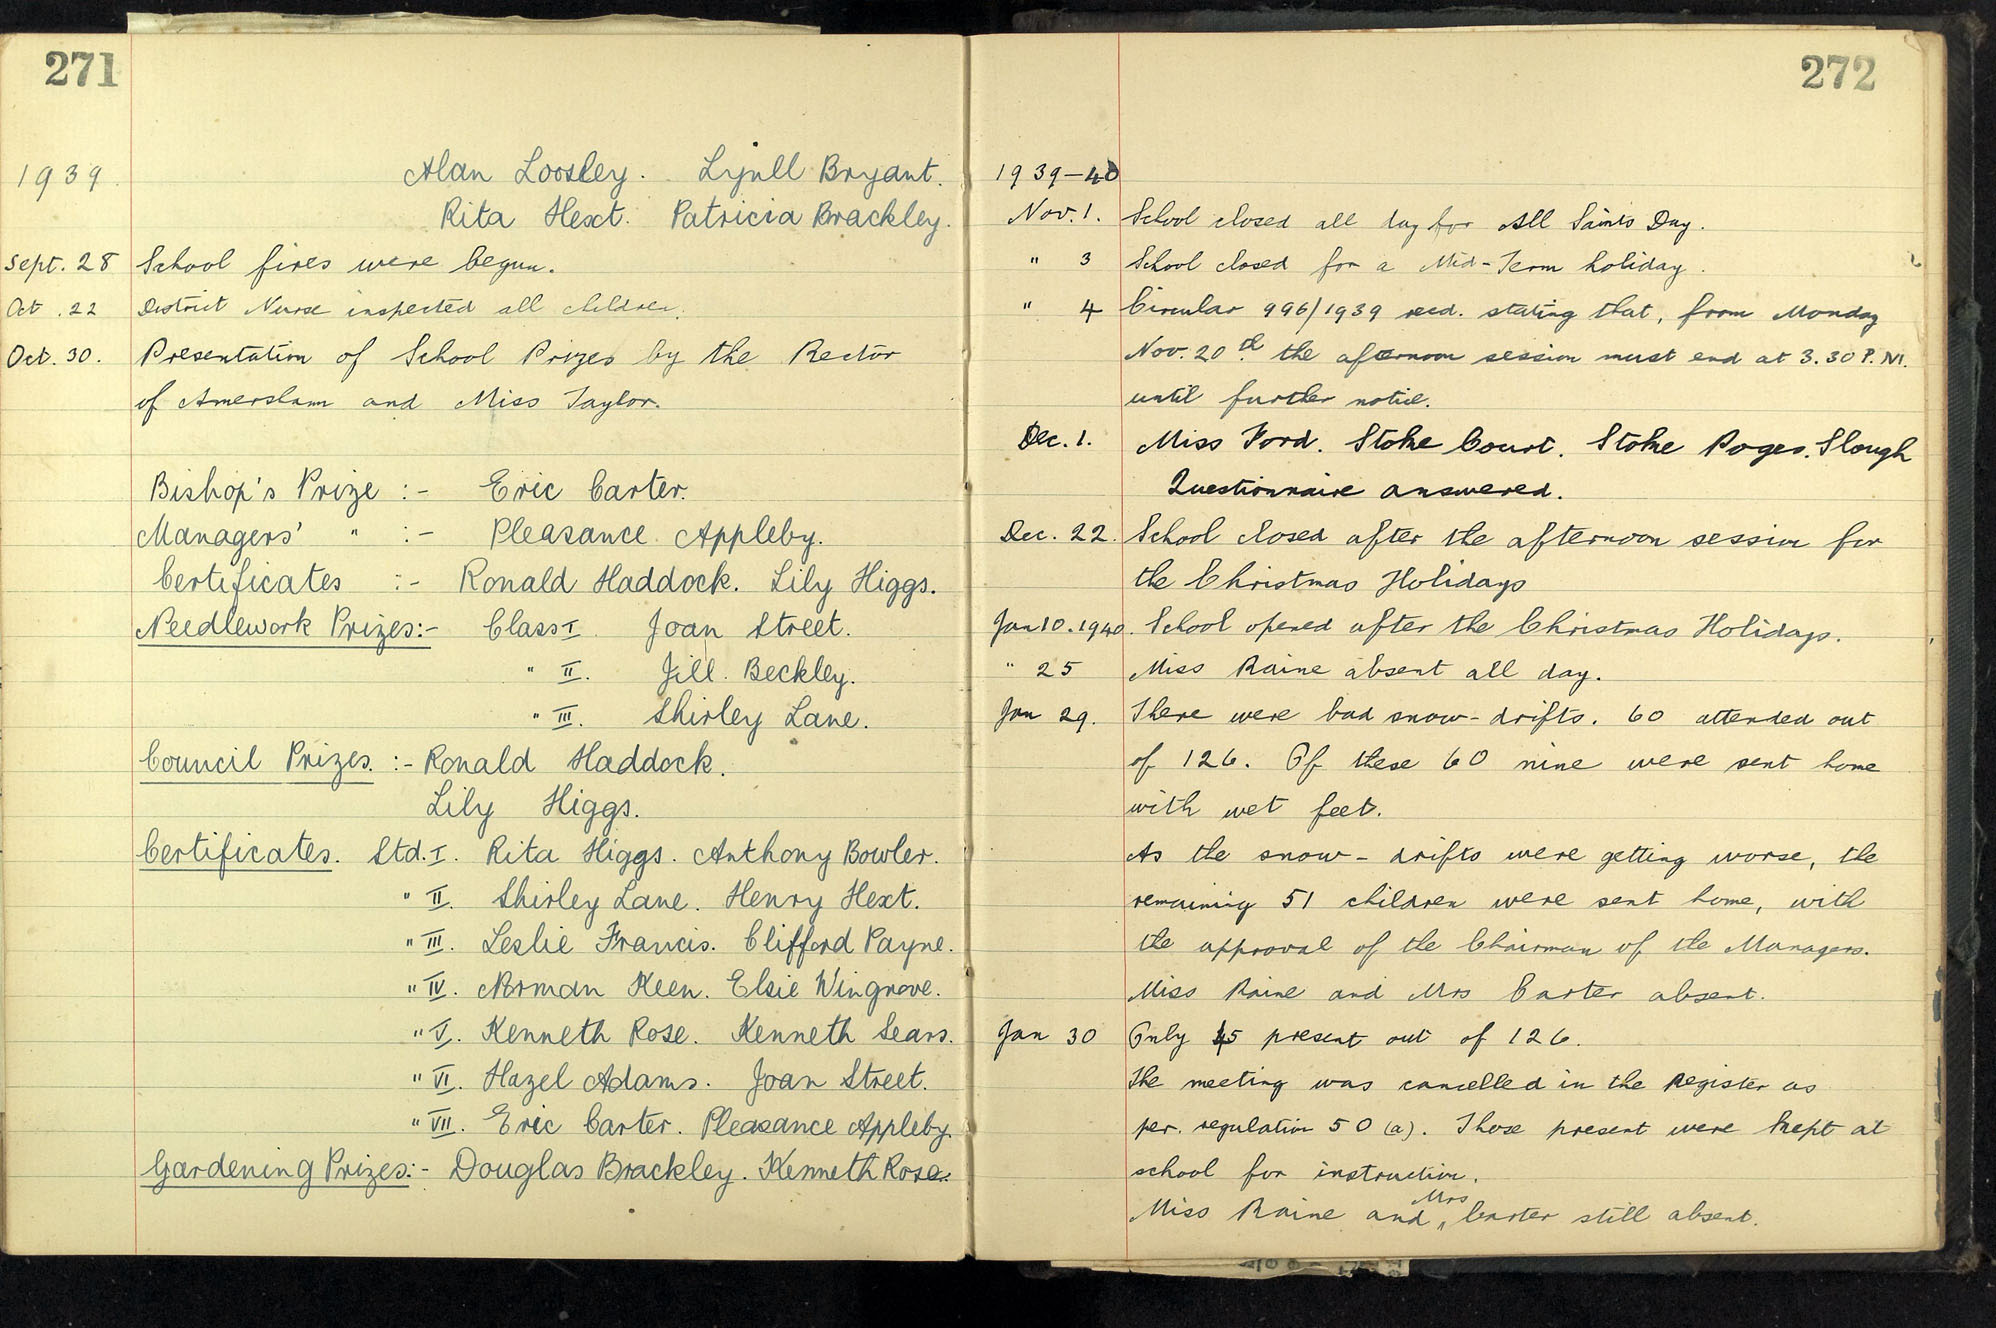 271
1939. Alan Loosley. Lynll Bryant.
Rita Hext. Patricia Brackley.
Sept. 28 School fires were begun.
Oct. 22 District Nurse inspected all children.
Oct. 30. Presentation of School Prizes by the Rector
of Amersham and Miss Taylor.
Bishop's Prize :- Eric Carter.
Managers' " :- Pleasance Appleby.
Certificates :- Ronald Haddock. Lily Higgs.
Needlework Prizes:- Class I Joan Street.
" II. Jill Beckley.
" III. Shirley Lane.
Council Prizes. :- Ronald Haddock.
Lily Higgs.
Certificates. Std. I. Rita Higgs. Anthony Bowler.
" II. Shirley Lane. Henry Hext.
" III. Leslie Francis. Clifford Payne.
" IV. Norman Keen. Elsie Wingrove.
" V. Kenneth Rose. Kenneth Sears.
" VI. Hazel Adams. Joan Street.
" VII. Eric Carter. Pleasance Appleby.
Gardening Prizes:- Douglas Brackley. Kenneth Rose.
272
1939-40
Nov. 1. School closed all day for All Saints Day.
" 3 School closed for a Mid-Term holiday.
" 4 Circular 996/1939 recd. stating that, from Monday
Nov. 20th the afternoon session must end at 3.30 P.M.
until further notice.
Dec. 1. Miss Ford. Stoke Court. Stoke Poges. Slough
Questionnaire answered.
Dec. 22. School closed after the afternoon session for
the Christmas Holidays
Jan 10. 1940. School opened after the Christmas Holidays.
" 25 Miss Raine absent all day.
Jan 29. There were bad snow-drifts. 60 attended out
of 126. Of these 60 nine were sent home
with wet feet.
As the snow-drifts were getting worse, the
remaining 51 children were sent home, with
the approval of the Chairman of the Managers.
Miss Raine and Mrs Carter absent.
Jan 30 Only 45 present out of 126.
The meeting was cancelled in the Register as
per. regulation 50 (a). Those present were kept at
school for instruction.
Miss Raine and Mrs Carter still absent.